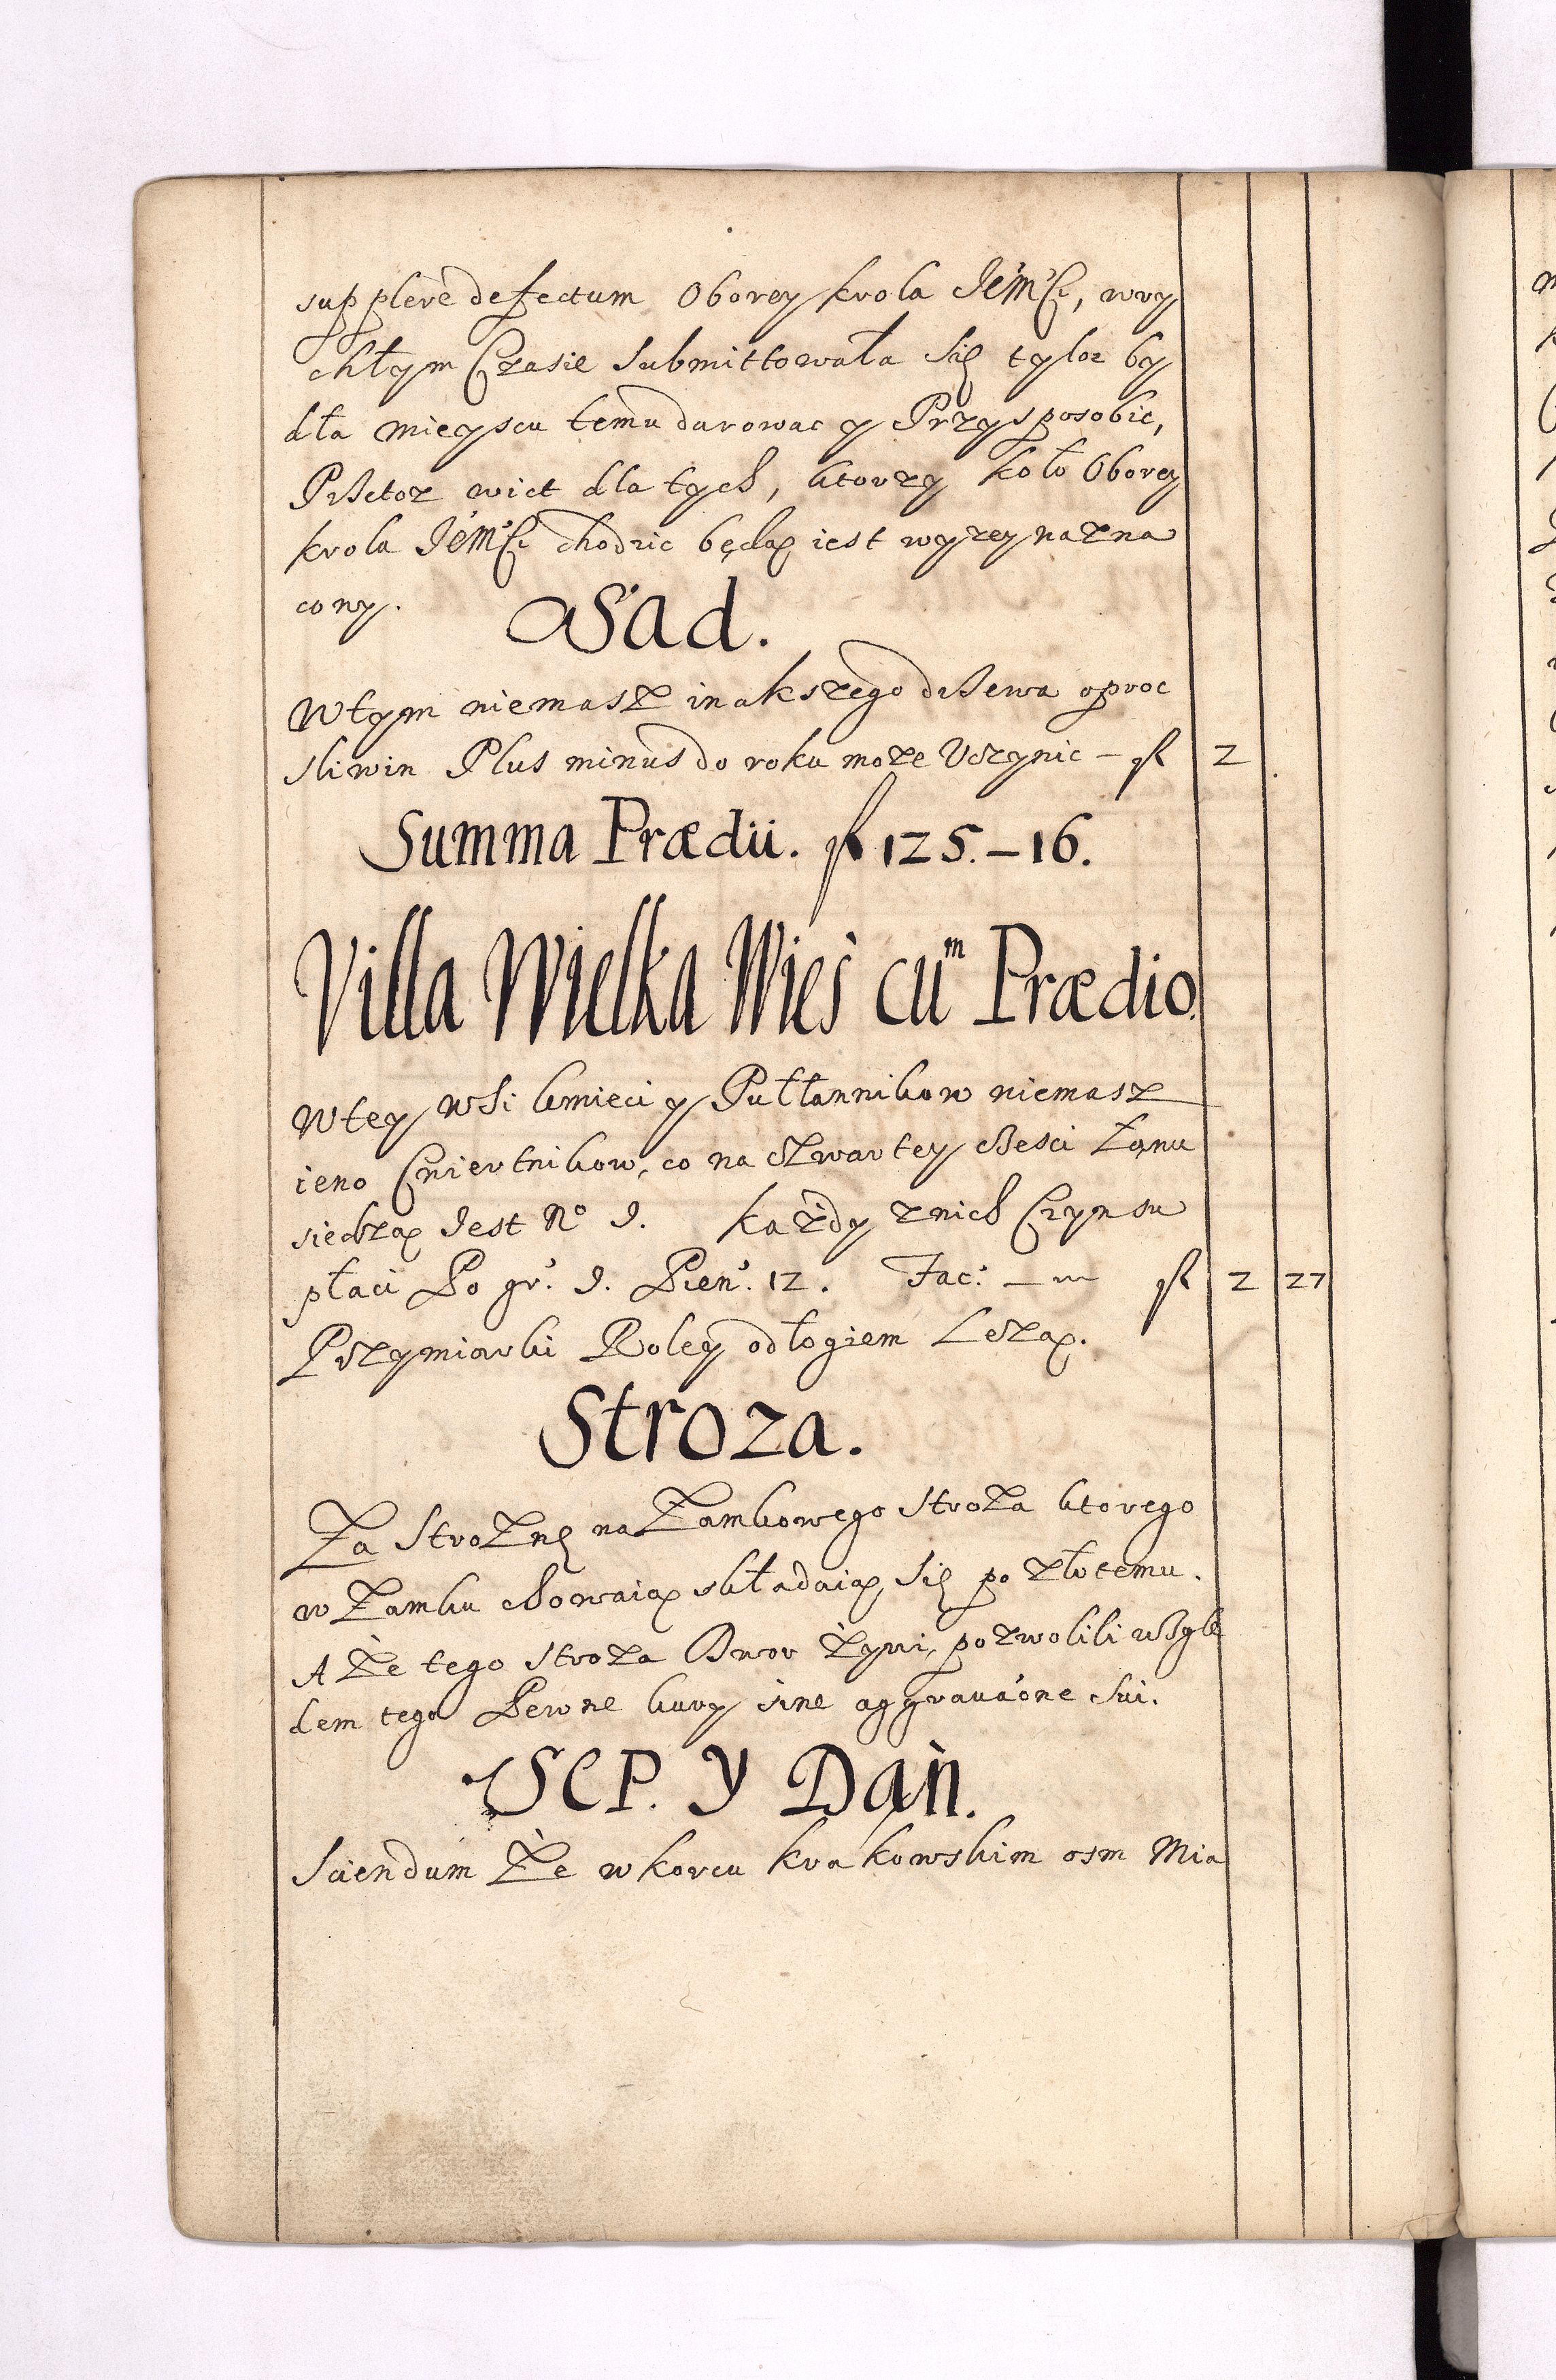 supplere defectum Oborey krola Je'm'ści, wry
chłym Czasie submittowała się tyloż by
dła mieyscu temu darowac y Przysposobic,
Prętor wiet dla tych, ktorzy koło Oborey
krola Je'm'ści chodzic będą iest wyzey nazna
cony.
Sad.
Wtym niemasz inakszego drzewa oproc
sliwin Plus minus do roku moze Uczynic – fl 2
Summa Prædii. fl 125.–16.
Villa Wielka Wieś cum Prædio.
Wtey wsi kmieci y Pułłannikow niemasz
ieno Cwiertnikow, co na czwartey części Łanu
siedzą Jest No 9. każdy znich Czynsu
płaci Po gr. 9. Pien. 12. Fac: — fl 2 27
Przymiarki Roley odłogiem Leżą.
Stroza.
Za Strożnę na Zamkowego stroża ktorego
w Zamku chowaią składaią się po złotemu.
A że tego stroża Dwor żywi, pozwolili wzglę
dem tego Pewne kury sine aggrauaóne sui.
Sep. y Dań.
Sciendum że w korcu krakowskim osm Mia